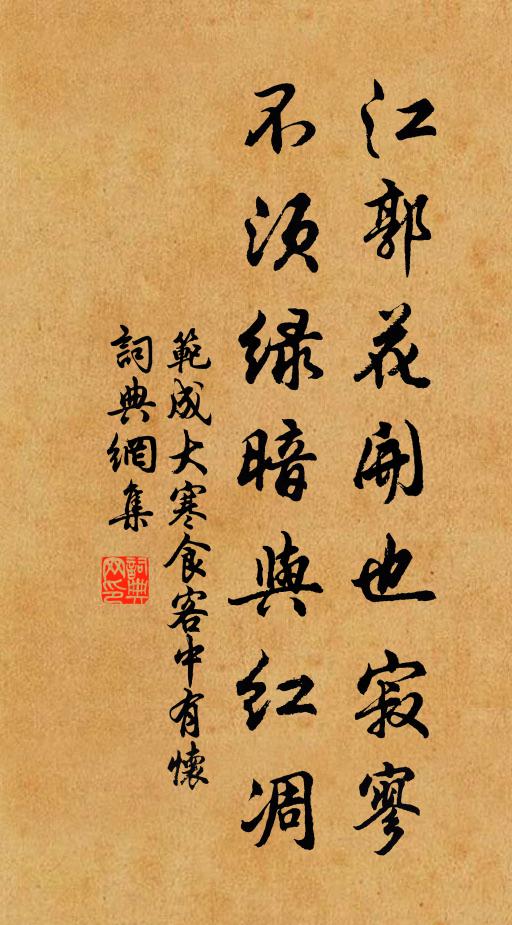 江郭花開也寂寥
不須緑暗與紅凋
範成大寒食客中有懷
詞典網集
詞典网印